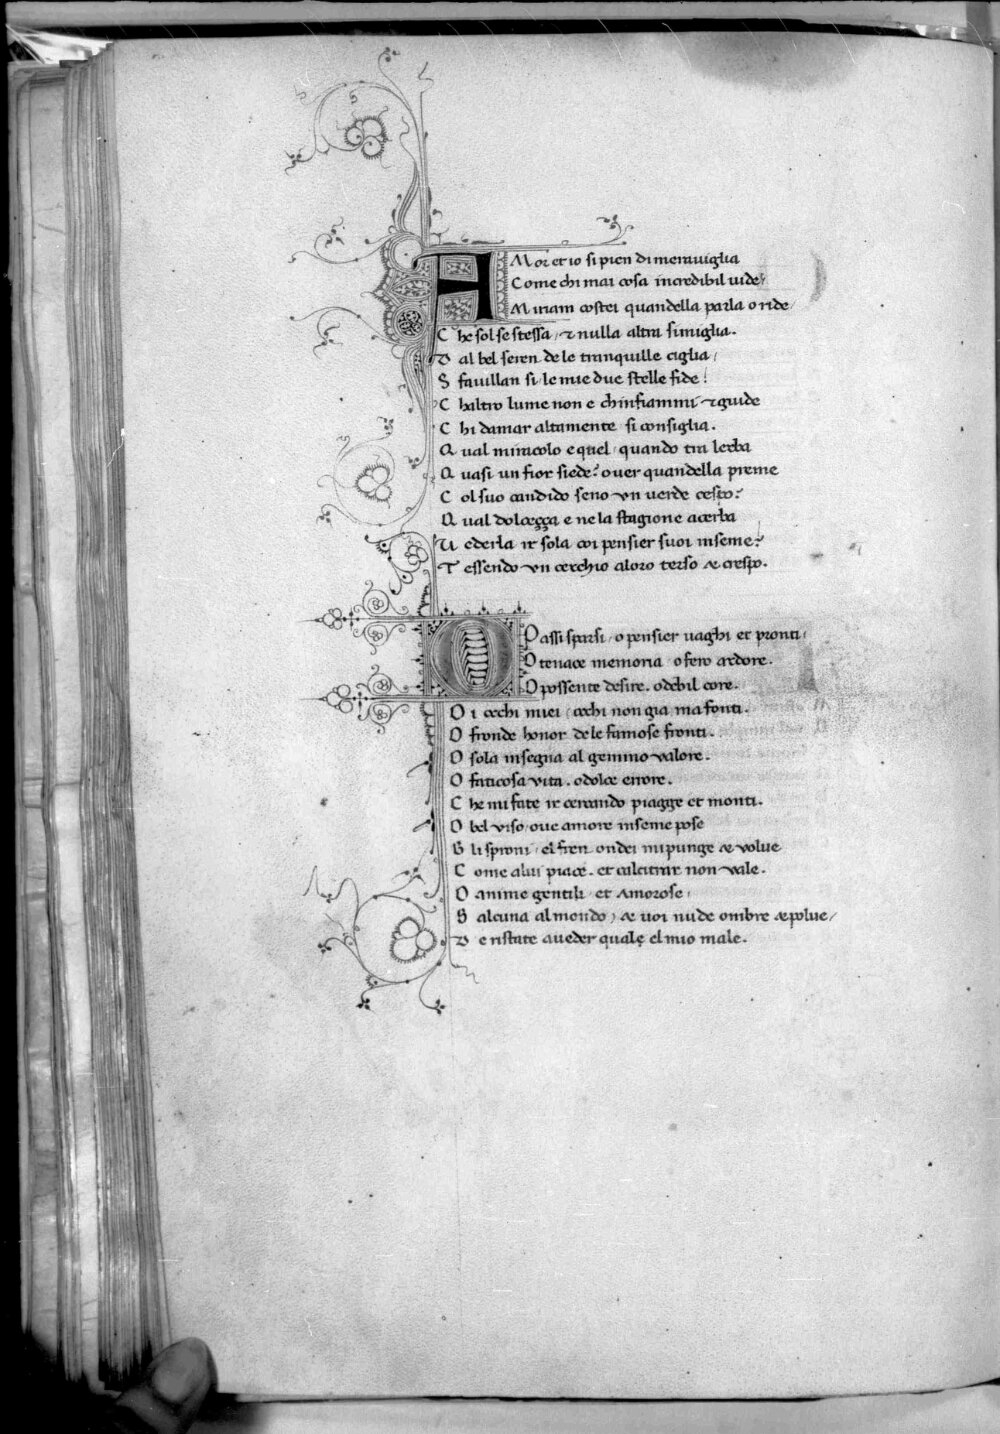 AMor et io si pien di meraviglia
Come chi mai cosa incredibil vide/
Miriam costei quandella parla o ride/
Che sol se stessa/ & nulla altra simiglia.
Dal bel seren de le tranquille ciglia/
Sfavillan si le mie due stelle fide!
Chaltro lume non e chinfiammi & guide
Chi damar altamente si consiglia.
Qual miracolo e quel/ quando tra lerba
Quasi un fior siede? over quandella preme
Col suo candido seno un verde cespo?
Qual dolcezza e ne la stagione acerba
Vederla ir sola coi pensier suoi inseme?
Tessendo un cerchio aloro terso & crespo.
O Passi sparsi/ o pensier vaghi et pronti/
O tenace memoria o fero ardore.
O possente desire. o debil core.
Oi occhi miei/ occhi non gia ma fonti.
O fronde honor de le famose fronti.
O sola insegna al gemino valore.
O faticosa vita. o dolce errore.
Che mi fate ir cercando piagge et monti.
O bel viso/ ove amore inseme pose
Gli sproni/ el fren ondei mi punge & volve
Come alui piace. et calcitrar non vale.
O anime gentili et amorose/
Salcuna al mondo, & voi nude ombre & polve/
De ristate a veder quale el mio male.